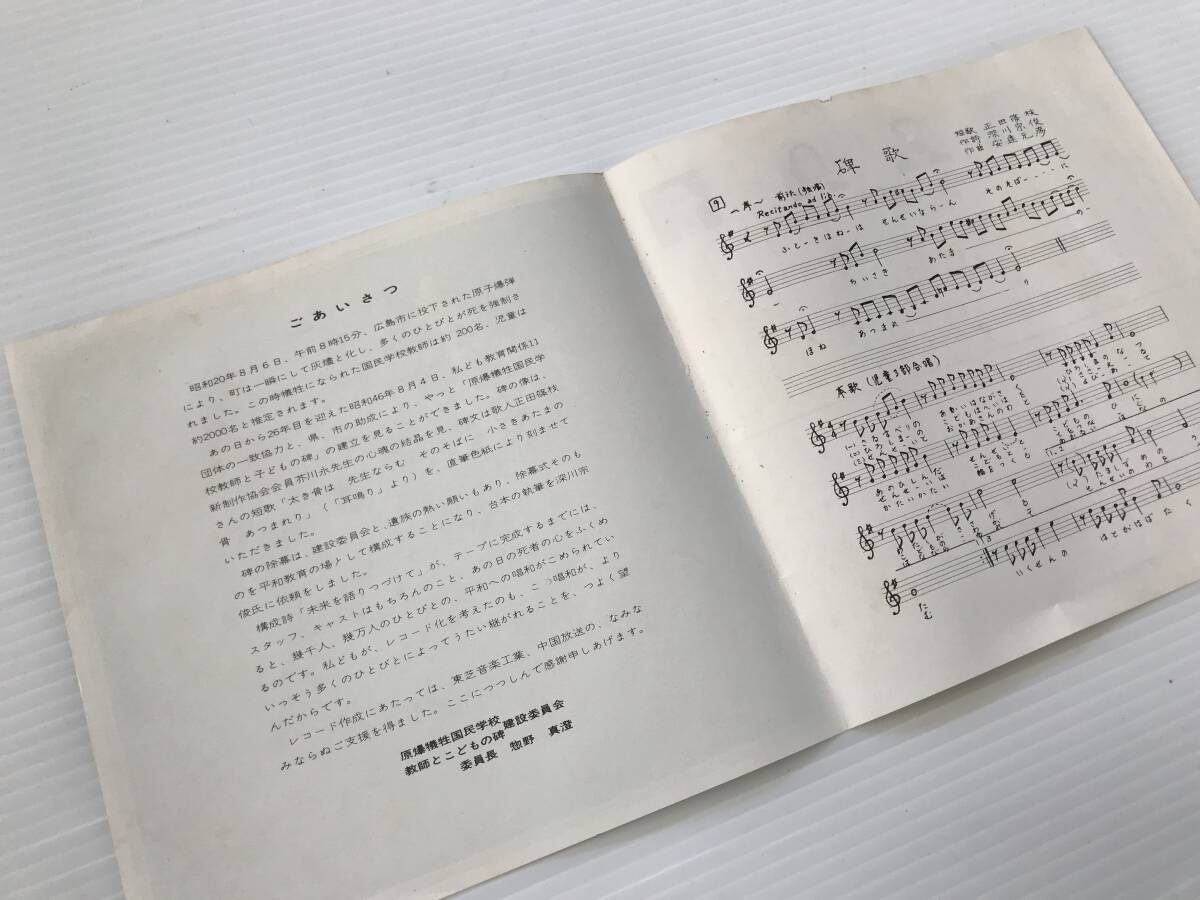 ごあいさつ
昭和20年8月6日、午前8時15分、広島市に投下された原子爆弾
により、町は一瞬にして灰燼と化し、多くのひとびとが死を強制さ
れました。この時犠牲になられた国民学校教師は約200名、児童は
約2000名と推定されます。
あの日から26年目を迎えた昭和46年8月4日、私ども教育関係11
団体の一致協力と、県、市の助成により、やっと「原爆犠牲国民学
校教師と子どもの碑」の建立を見ることができました。碑の像は、
新制作協会会員芥川永先生の心魂の結晶を見、碑文は歌人正田篠枝
さんの短歌「太き骨は 先生ならむ そのそばに 小さきあたまの
骨 あつまれり」(「耳鳴り」より)を、直筆色紙により刻ませて
いただきました。
碑の除幕は、建設委員会と、遺族の熱い願いもあり、除幕式そのも
のを平和教育の場として構成することになり、台本の執筆を深川宗
俊氏に依頼をしました。
構成詩「未来を語りつづけて」が、テープに完成するまでには、
スタッフ、キャストはもちろんのこと、あの日の死者の心をふくめ
ると、幾千人、幾万人のひとびとの、平和への唱和がこめられてい
るのです。私どもが、レコード化を考えたのも、こっ唱和が、より
いっそう多くのひとびとによってうたい継がれることを、つよく望
んだからです。
レコード作成にあたっては、東芝音楽工業、中国放送の、なみな
みならぬご支援を得ました。ここにつつしんで感謝申しあげます。
原爆犠牲国民学校
教師とこどもの碑 建設委員会
委員長 惣野 真澄
碑歌
短歌 正田篠枝
作詩 深川宗俊
作曲 安達元彦
9
〜序〜 前れ(独唱)
Recitando ad lib.
ふとーきほねーは せんせいならーん そのそばーーーーに
ちいさき あたま の
ほね あつまれ り
本歌(児童3部合唱)
いくせんの はとがはばたく
たむ